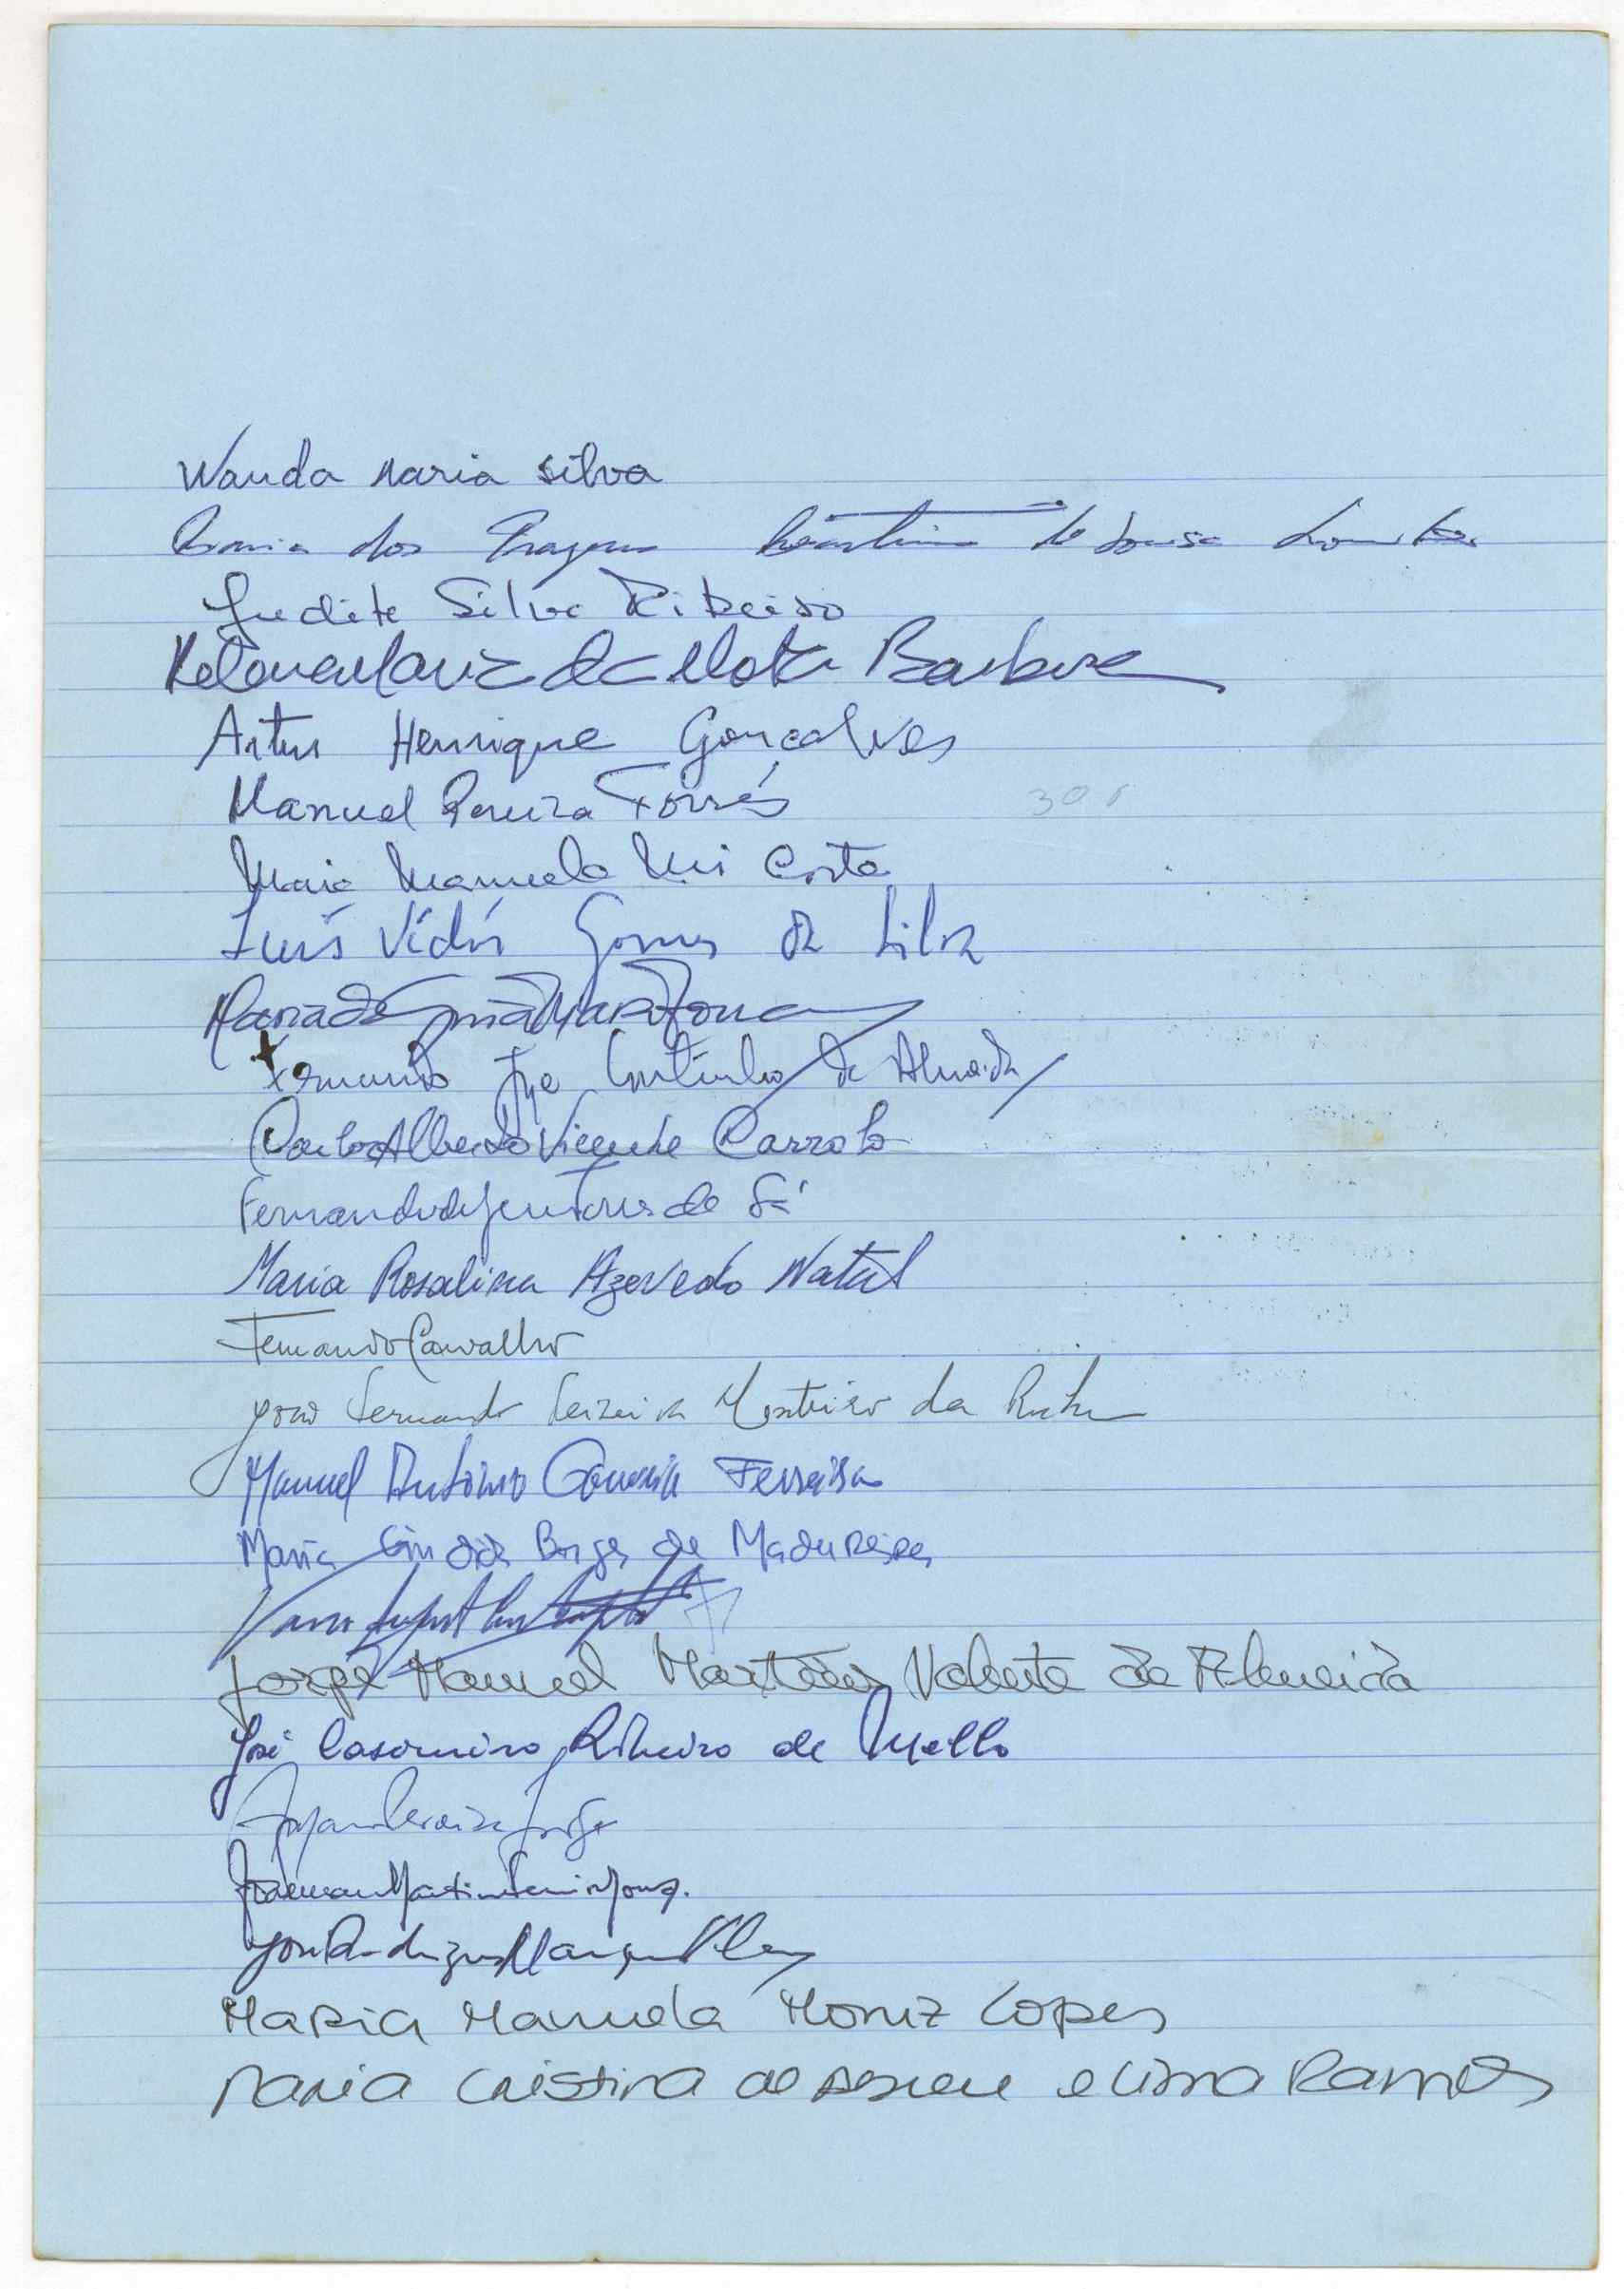 Wanda Maria Silva
dos de Sousa
Judite Silva Ribeiro
Helena Maria da Mota Barbosa
Artur Henrique Gonçalves
Manuel Pereira Torres
30
Maria Manuela Costa
Luís Vidór Gomes da Silva
Maria de
Fernando José Coutinho de Almeida
Carlos Alberto Vicente Carrolo
Fernando de Jesus Torres de Sá
Maria Rosalina Azevedo Natal
Fernando Carvalho
João Fernando Teixeira Monteiro da Rocha
Manuel António Gouveia Ferreira
Maria Cândida Borges de Madureira
Jorge Manuel Martins Valente de Almeida
José Casimiro Ribeiro de Mello
José Rodrigues Marques
Maria Manuela Moniz Lopes
Maria Cristina de Abreu e Lima Ramos